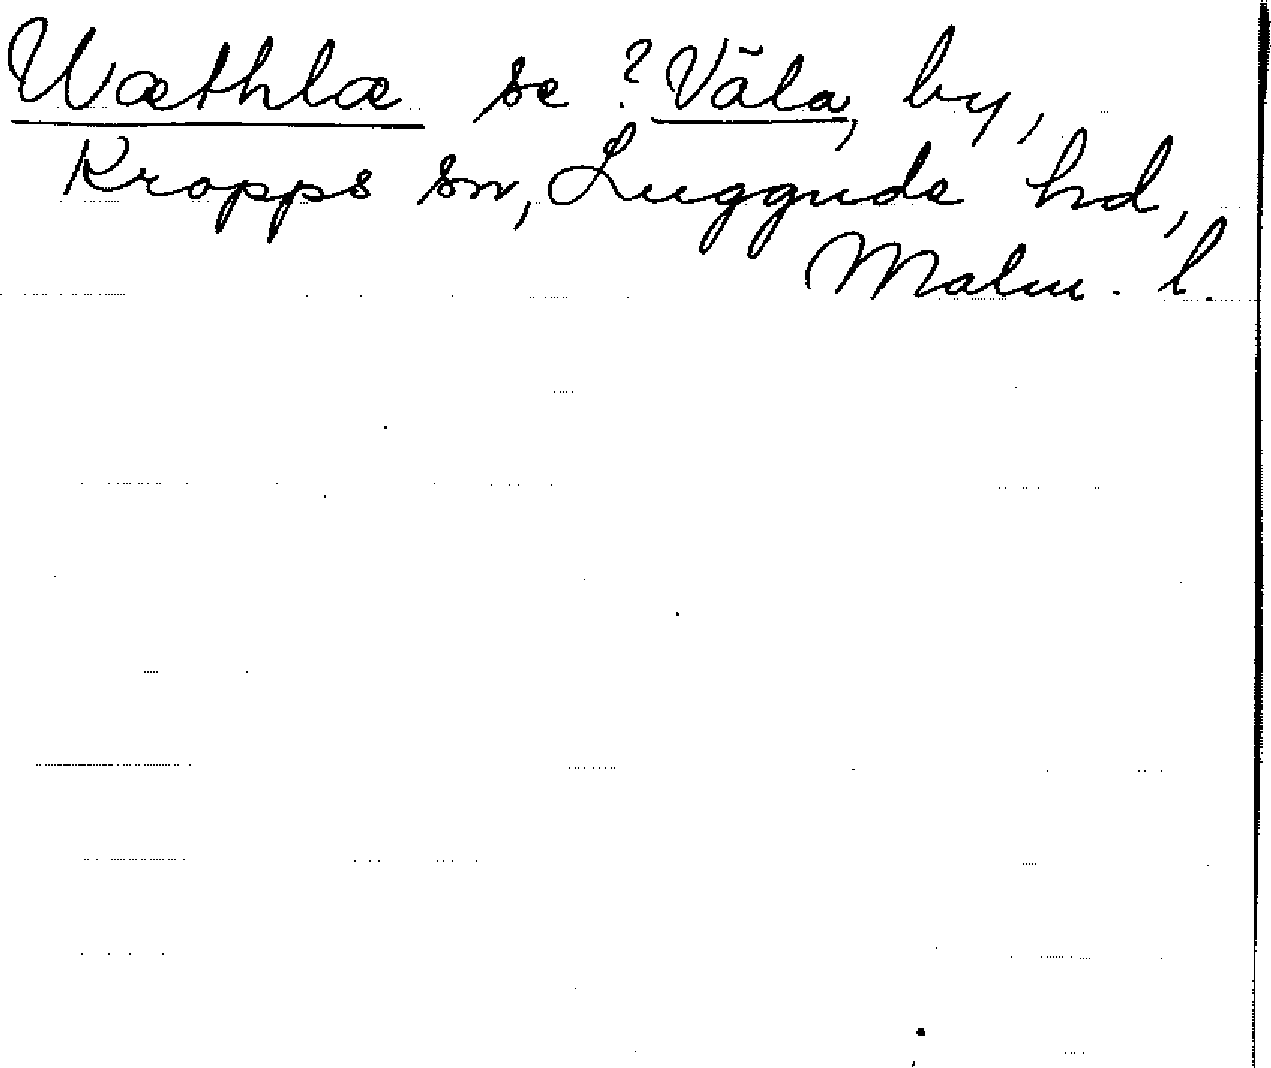 Wæthlæ se ? Väla, by,
Kropps sn, Luggude hd,
Malm. l.